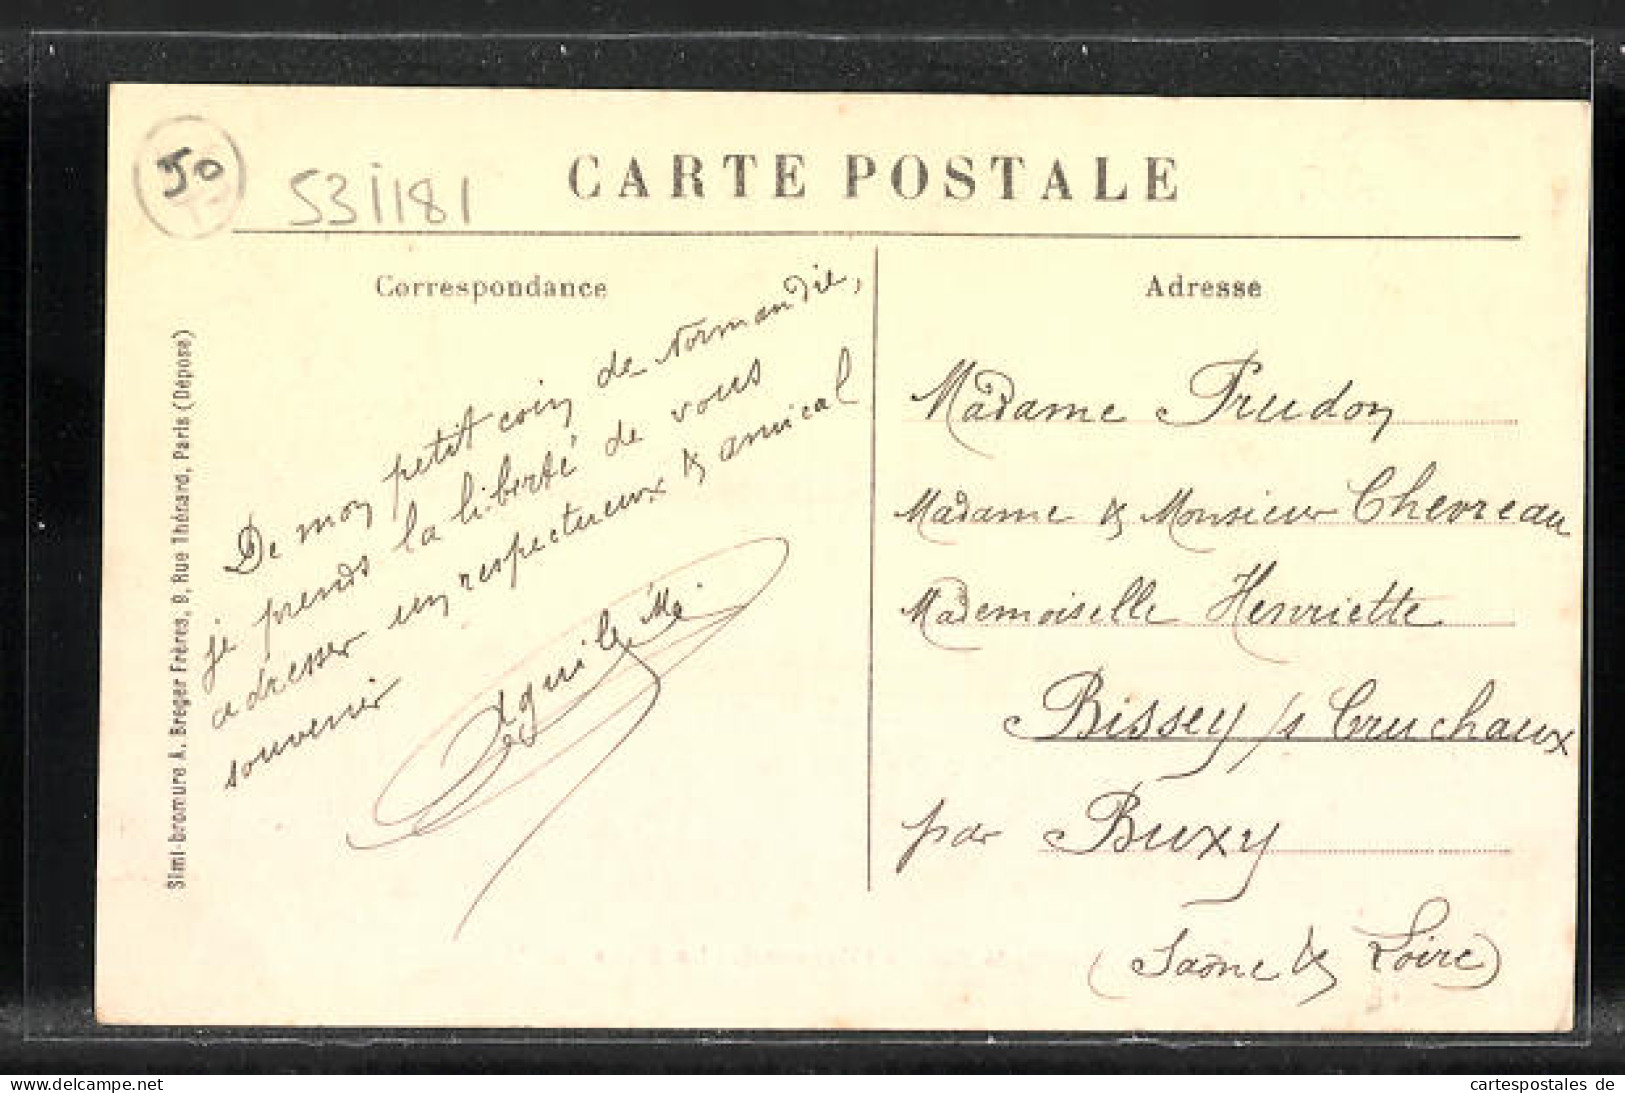 50
531181
CARTE POSTALE
Correspondance
De mon petit coin de Normandie,
je prends la liberté de vous
adresser un respectueux & amical
souvenir
Adresse
Madame Prudon
Madame & Monsieur Chevreau
Mademoiselle Henriette
Bissey /s Cruchaux
par Buxy
(Saône & Loire)
Simi-bromure A. Breger Frères, 9, Rue Thénard, Paris (Déposé)
delcampe.net
cartespostales de